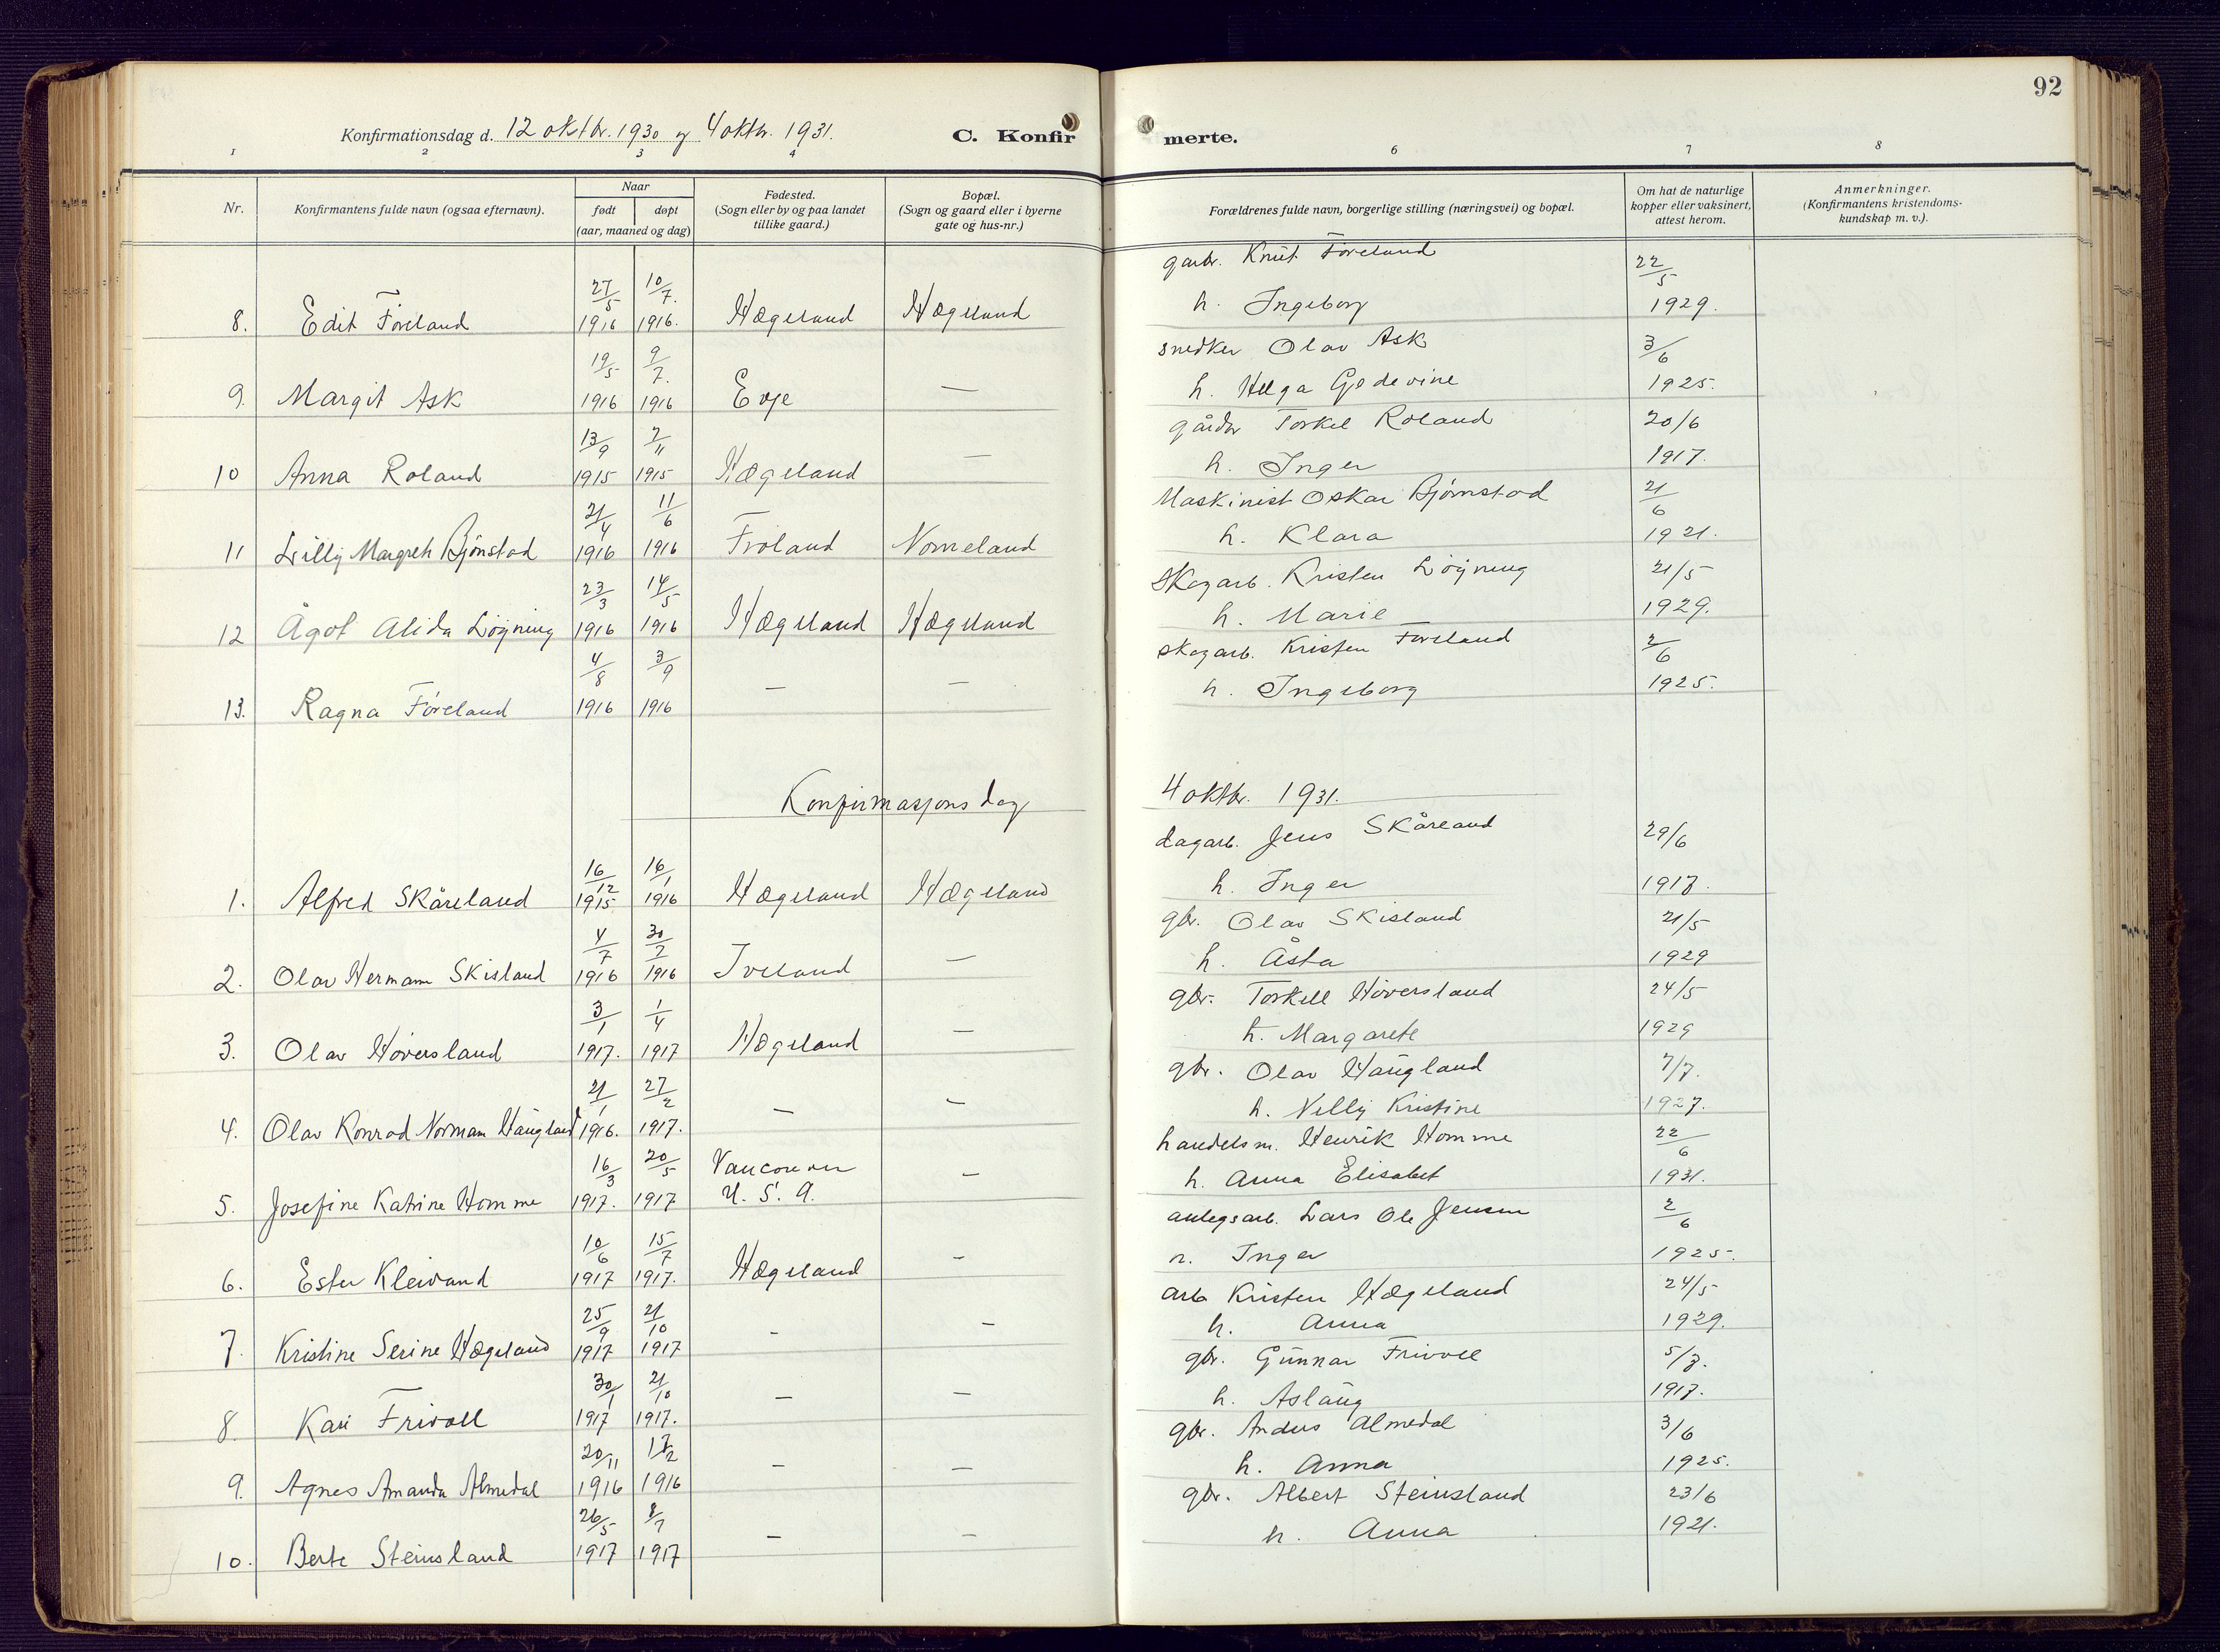 92
Konfirmationsdag d. 12 oktbr. 1930 og 4 oktbr. 1931.
C. Konfirmerte.
1 2 3 4 6 7 8
Nr.
Konfirmantens fulde navn (ogsaa efternavn).
Naar
født døpt
(aar, maaned og dag)
Fødested.
(Sogn eller by og paa landet
tillike gaard.)
Bopæl.
(Sogn og gaard eller i byerne
gate og hus-nr.)
Forældrenes fulde navn, borgerlige stilling (næringsvei) og bopæl.
Om hat de naturlige
kopper eller vaksinert,
attest herom.
Anmerkninger.
(Konfirmantens kristendoms-
kundskap m. v.).
garbr. Knut Föreland 22/5
8. Edit Föreland 27/5 1916 10/7. 1916. Hægeland Hægeland h. Ingeborg 1929.
snedker Olav Ask 3/6
9. Margit Ask 19/5 1916 9/7. 1916 Evje — h. Helga Gjedevine 1925.
gårdbr Torkel Roland 20/6
10 Anna Roland 13/9 1915 7/11 1915 Hægeland — h. Inger 1917.
Maskinist Oskar Bjørnstad 21/6
11 Lilly Margreth Bjönstad 21/4 1916 11/6 1916 Froland Nomeland h. Klara 1921.
skogarb. Kristen Löyning 21/5
12 Ågot Alida Löyning 23/3 1916 14/5 1916 Hægeland Hægeland h. Marie 1929.
skogarb. Kristen Föreland 2/6
13. Ragna Föreland 4/8 1916 3/9 1916 — — h. Ingeborg 1925.
Konfirmasjonsdag 4 oktbr. 1931.
dagarb. Jens Skåreland 29/6
1. Alfred Skåreland 16/12 1915 16/1 1916 Hægeland Hægeland h. Inger 1917.
gbr. Olav Skisland 21/5
2. Olav Hermann Skisland 4/7 1916 30/7 1916 Iveland — h. Åsta 1929
gbr. Torkell Höversland 24/5
3. Olav Höversland 3/1 1917. 1/4 1917 Hægeland — h. Margarete 1929
gbr. Olav Haugland 7/7.
4. Olav Konrad Norman Haugland 21/1 1916. 27/2 1917. — — h. Nelly Kristine 1927.
handelsm. Henrik Homme 22/6
5. Josefine Katrine Homme 16/3 1917. 20/5 1917 Vancouver U. S. A. — h. Anna Elisabet 1931.
anlegsarb. Lars Ole Jensen 2/6
6. Ester Kleivand 10/6 1917 15/7 1917. Hægeland — n. Inger 1925.
arb Kristen Hægeland 24/5
7. Kristine Serine Hægeland 25/9 1917 21/10 1917 — — h. Anna 1929.
gbr. Gunnar Frivoll 5/7.
8. Kari Frivoll 30/1 1917 21/10 1917. — — h. Aslaug 1917.
gbr. Anders Almedal 3/6
9. Agnes Amanda Almedal 20/11 1916 17/12 1916 — — h. Anna 1925.
gbr. Albert Steinsland 23/6
10. Berte Steinsland 26/5 1917 8/7 1917 — — h. Anna 1921.